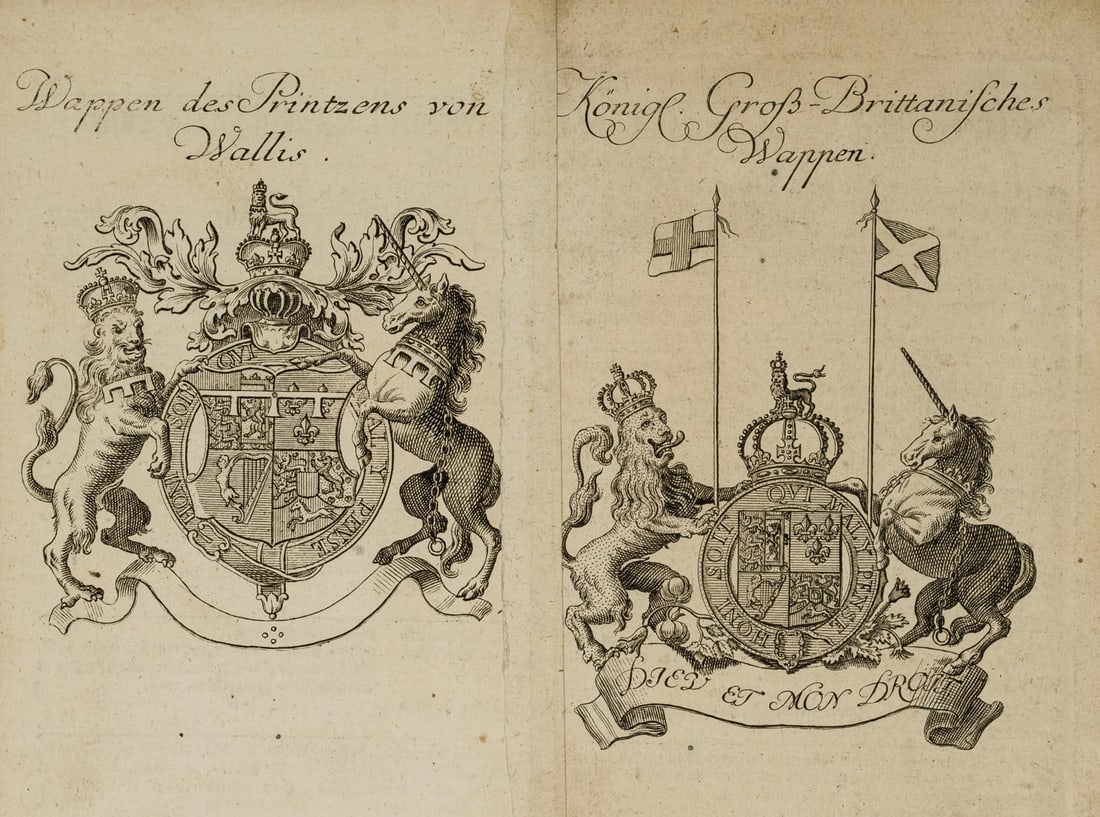 Wappen des Printzens von
Wallis.
HONI SOIT QVI MAL Y PENSE
Königl. Groß-Brittanisches
Wappen.
HONI SOIT QVI MAL Y PENSE
DIEV ET MON DROIT